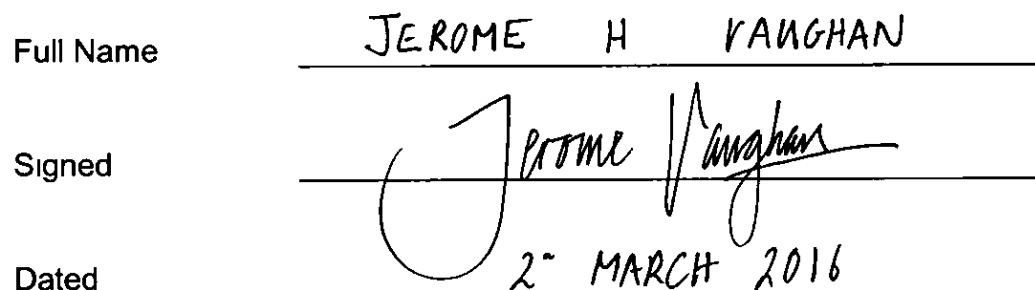 Full Name JEROME H VAUGHAN
Signed Jerome Vaughan
Dated 2 MARCH 2016